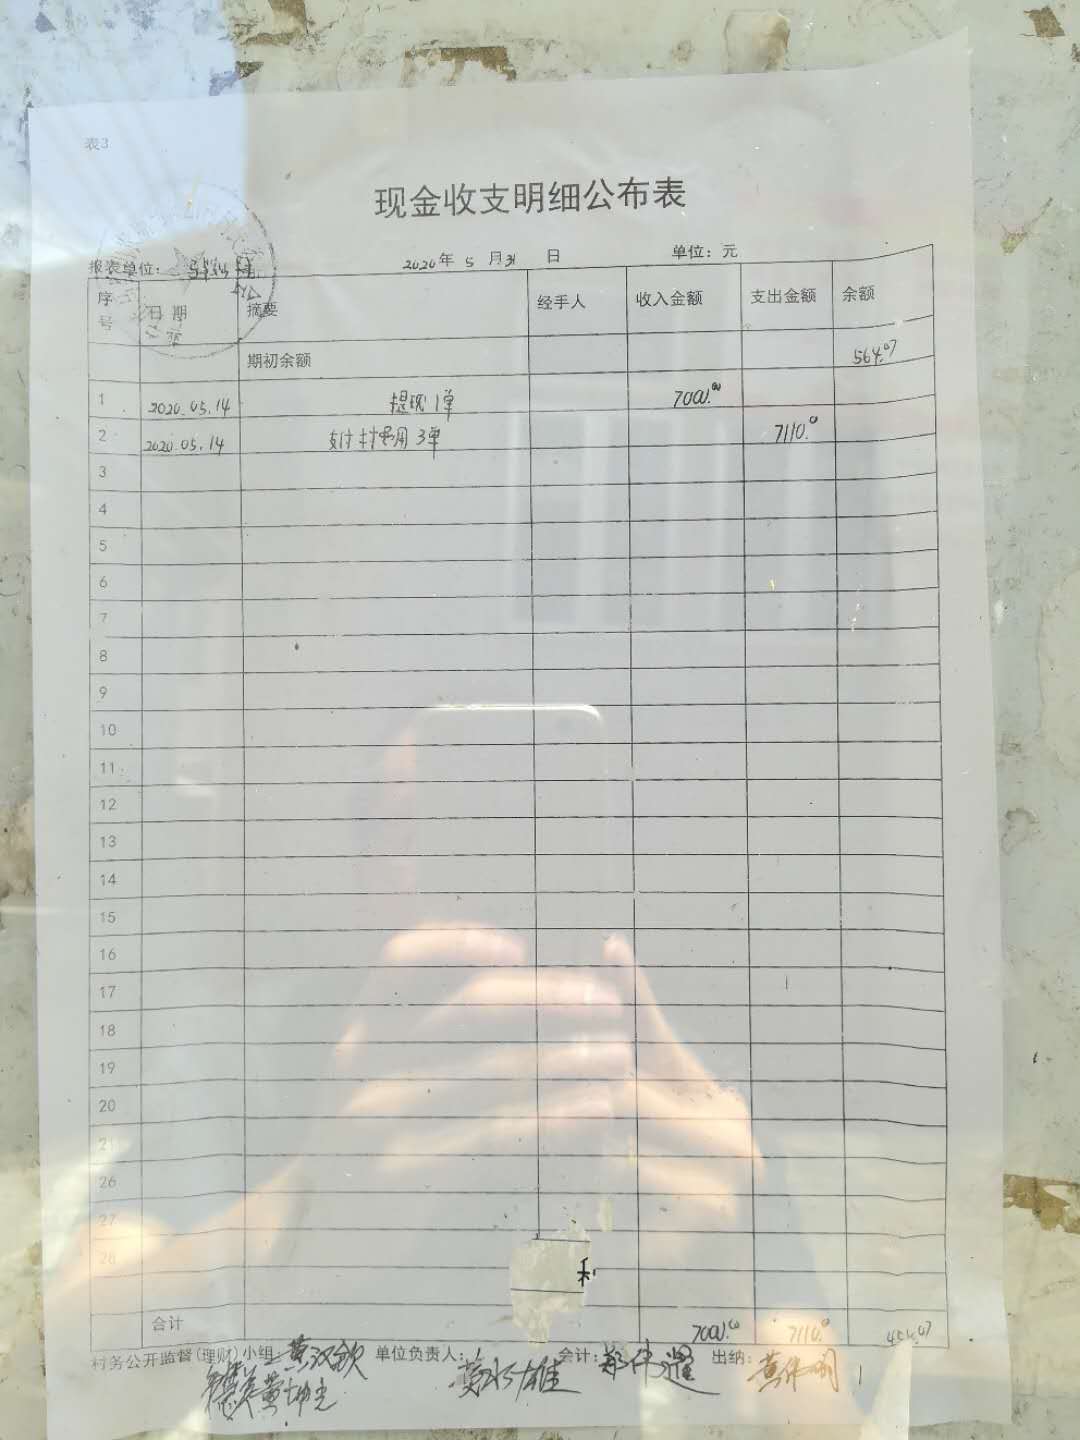 表3
现金收支明细公布表
报表单位: 2020年 5 月31 日 单位: 元
序号 日期 摘要 经手人 收入金额 支出金额 余额
期初余额 564.07
1 2020.05.14 提现1单 7000.00
2 2020.05.14 支付村费用3单 7110.0
3
4
5
6
7
8
9
10
11
12
13
14
15
16
17
18
19
20
21
26
27
28
合计 7000.00 7110.0 454.07
村务公开监督(理财)小组: 黄汉钦 单位负责人: 会计: 郑伟 出纳: 黄伟明
黄坤光 黄水雄